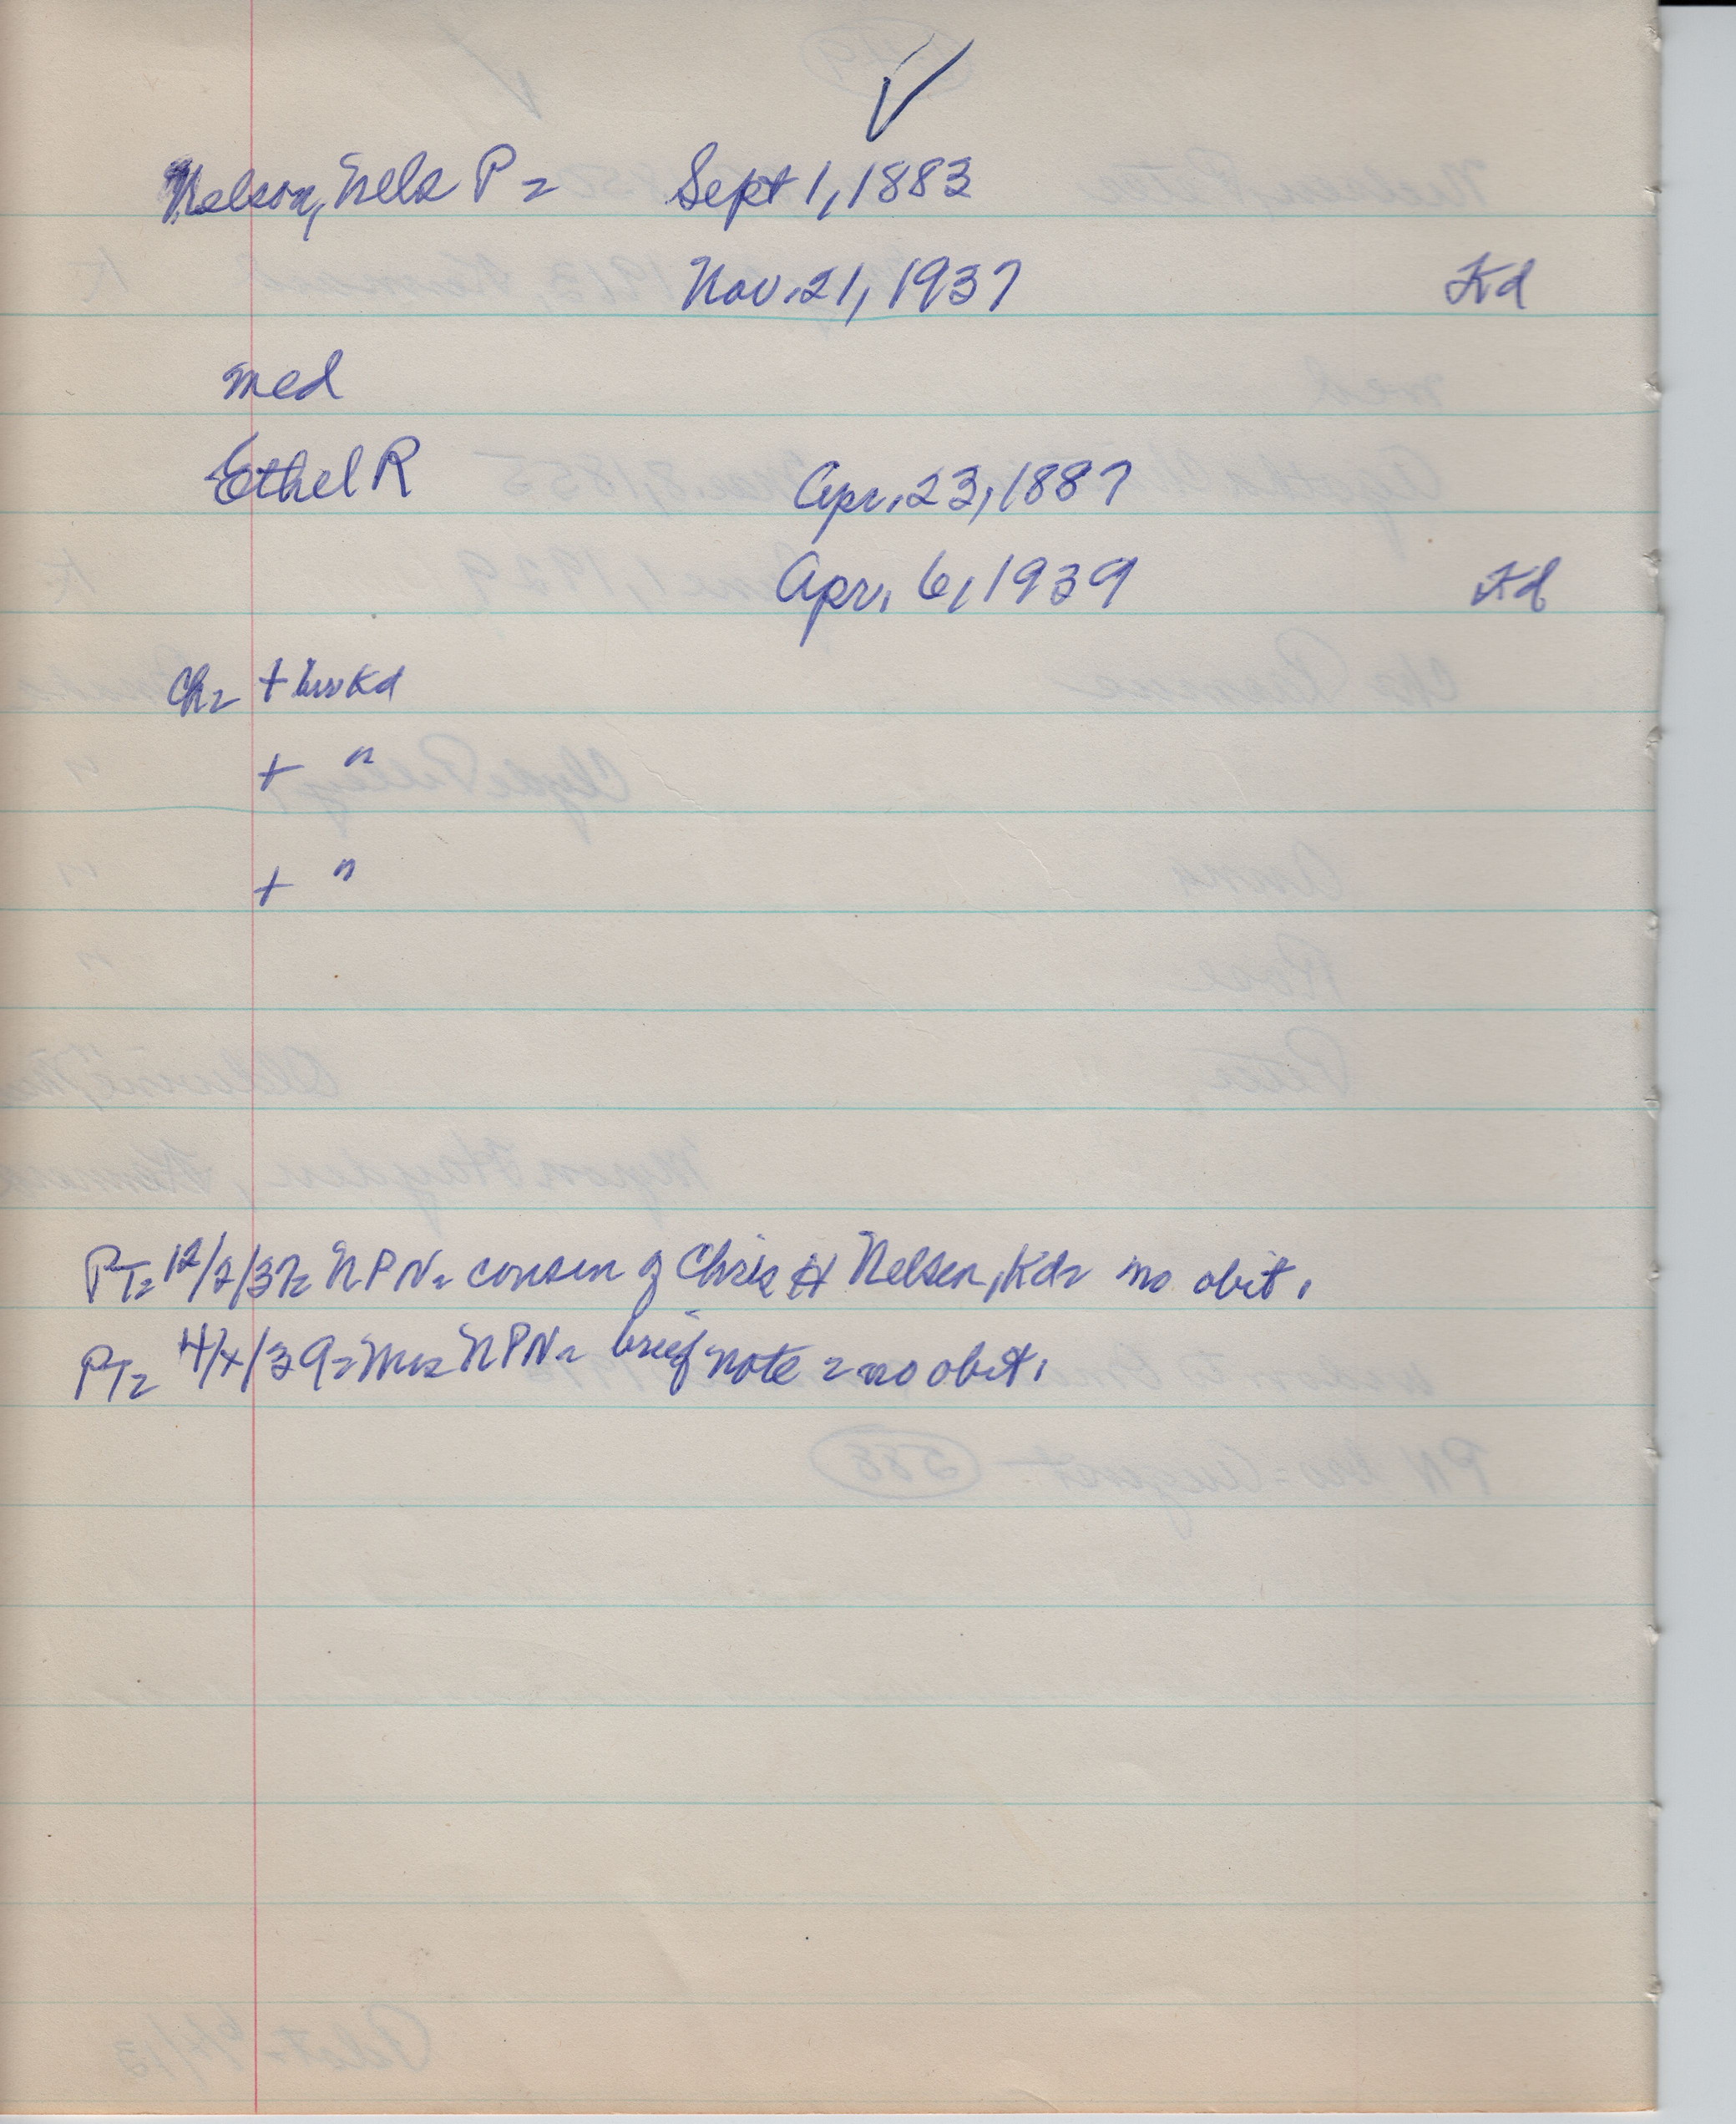 ✓
Nelson, Nels P = Sept 1, 1883
Nov. 21, 1937 Kd
med
Ethel R Apr. 23, 1887
Apr. 6, 1939 Kd
Ch = + bur Kd
+ "
+ "
PT = 12/2/37 = NPN = cousin of Chris H Nelsen, Kd = no obit.
PT = 4/ /39 = Mrs NPN = brief note = no obit.